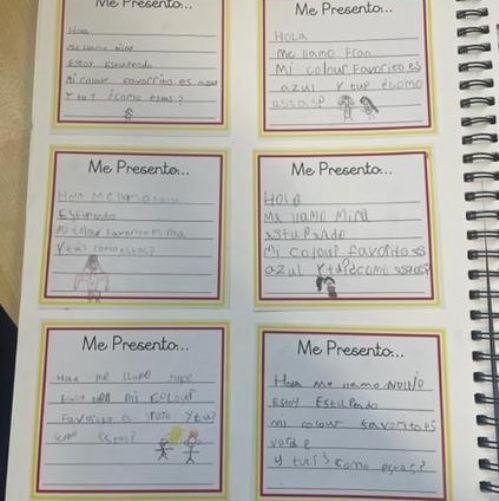 Me Presento...
Hola
Me llamo
Estoy Estupendo
Mi colour favorrito es azul
Y tu? ¿como estas?
Me Presento...
HOLA
Me llamo Fran
Mi colour Favorito es
azul Y tu? ¿como
estas?
Me Presento...
Hola Me llamo
Estupendo
Mi colour Favorito es
Y tu? como estas?
Me Presento...
HOLA
Me llamo Mina
estupendo
Mi colour favorito es
azul Y tu?¿como estas?
Me Presento...
Hola me llamo
mi colour
Favorito es rojo Y tu?
como estas?
Me Presento...
Hola me llamo
Estoy Estupendo
mi colour favorito es
verde
y tu?¿como estas?